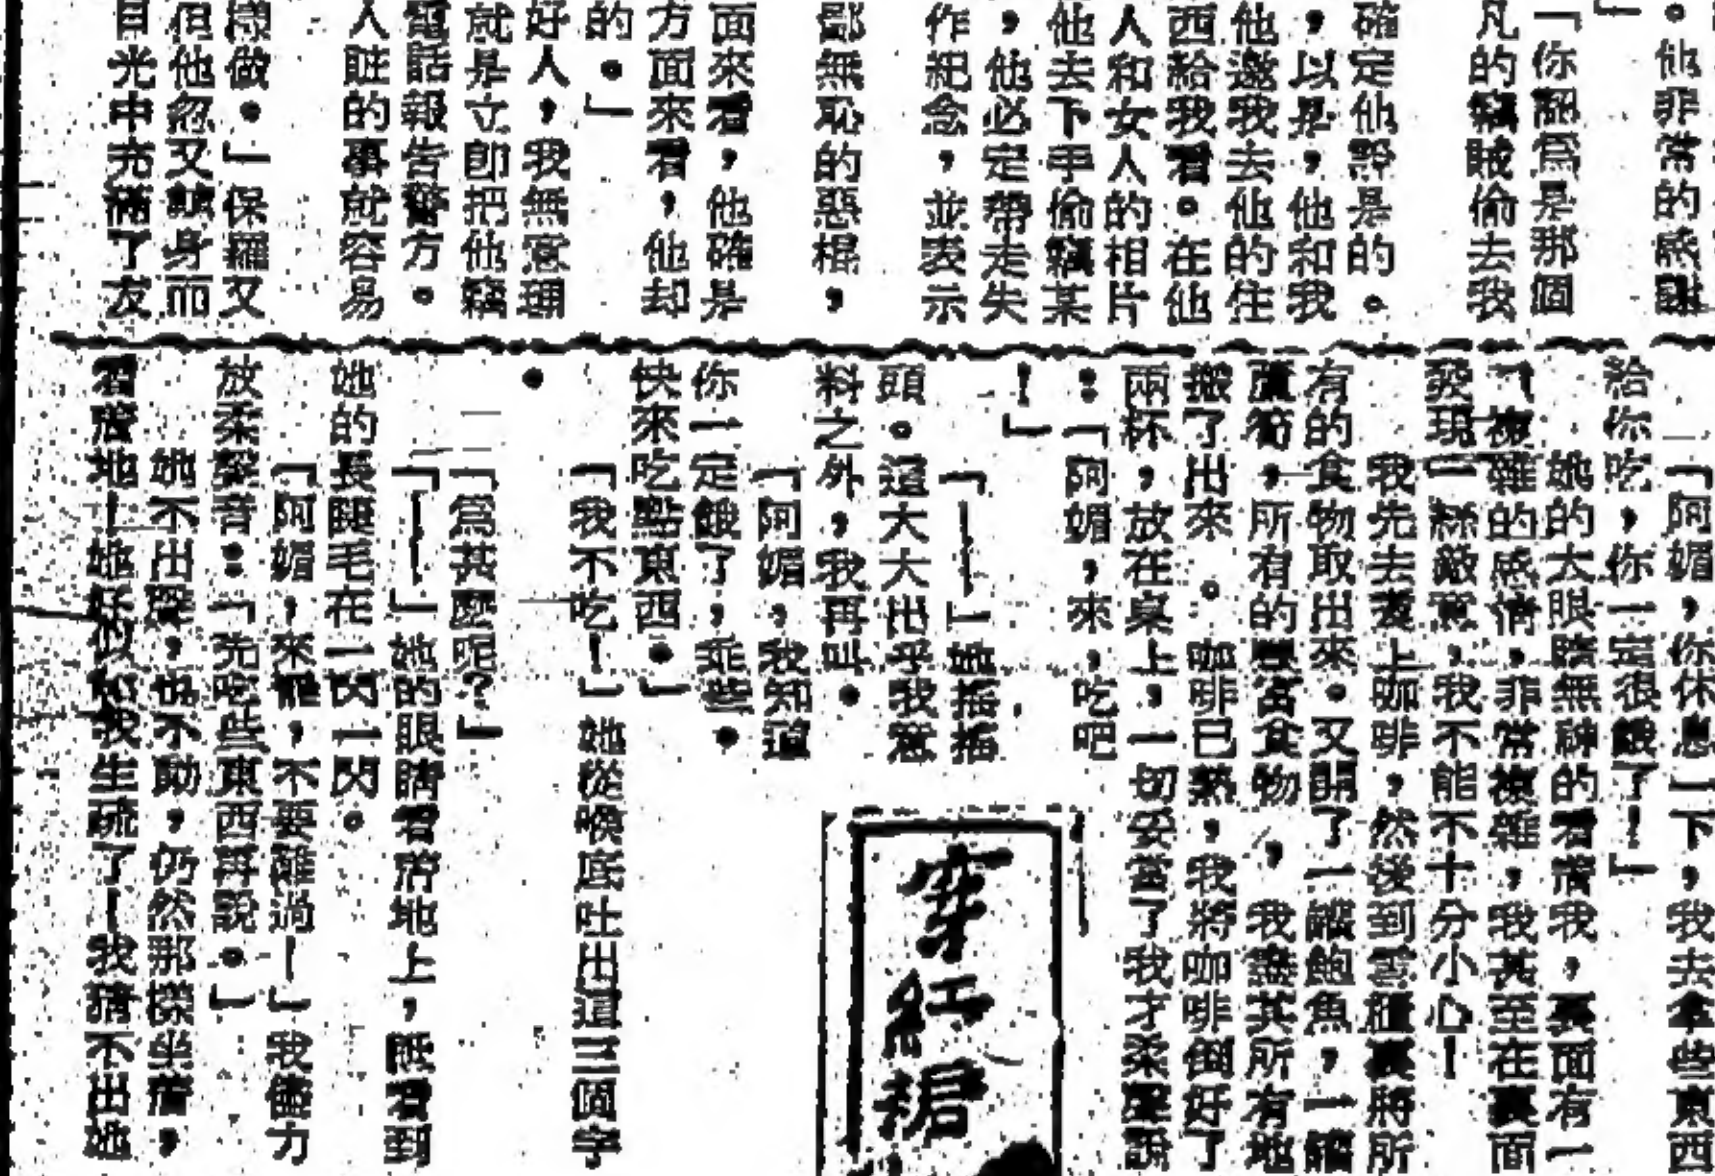 。他非常的感謝
」
「你認爲是那個
凡的竊賊偷去我
確定他認是的。
，以是，他和我
他邀我去他的住
西給我看。在他
人和女人的相片
他去下手偷竊某
，他必定帶走失
作紀念，並表示
鄙無恥的惡棍，
面來看，他確是
方面來看，他却
的。」
好人，我無意理
就是立即把他竊
電話報告警方。
人賍的事就容易
樣做。」保羅又
但他忽又轉身而
目光中充滿了友
「阿媚，你休息一下，我去拿些東西
給你吃，你一定很餓了！」
她的大眼睛無神的看着我，裏面有一
複雜的感情，非常複雜，我甚至在裏面
發現一絲敵意，我不能不十分小心！
我先去煑上咖啡，然後到雲櫃裏將所
有的食物取出來。又開了一罐鮑魚，一罐
蘆筍，所有的豐富食物，我盡其所有地
搬了出來。咖啡已熱，我將咖啡倒好了
兩杯，放在桌上，一切妥當了我才柔聲說
：「阿媚，來，吃吧
！」
「——」她搖搖
頭。這大大出乎我意
料之外，我再叫。
「阿媚，我知道
你一定餓了，乖些。
快來吃點東西。」
「我不吃！」她從喉底吐出這三個字
。
「爲甚麼呢？」
「——」她的眼睛看着地上，祗看到
她的長睫毛在一閃一閃。
「阿媚，來罷，不要難過！」我儘力
放柔聲音：「先吃些東西再說。」
她不出聲，也不動，仍然那樣坐着，
看着地！她好似於我生疏了！我猜不出她
穿紅裙